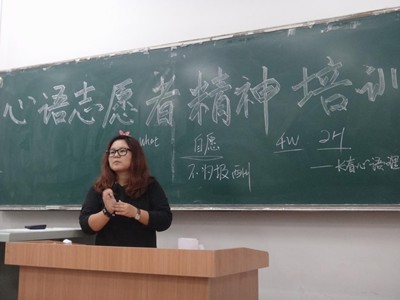 心语志愿者精神培训
what 自愿 4W 2H
不为报酬
——长春心语